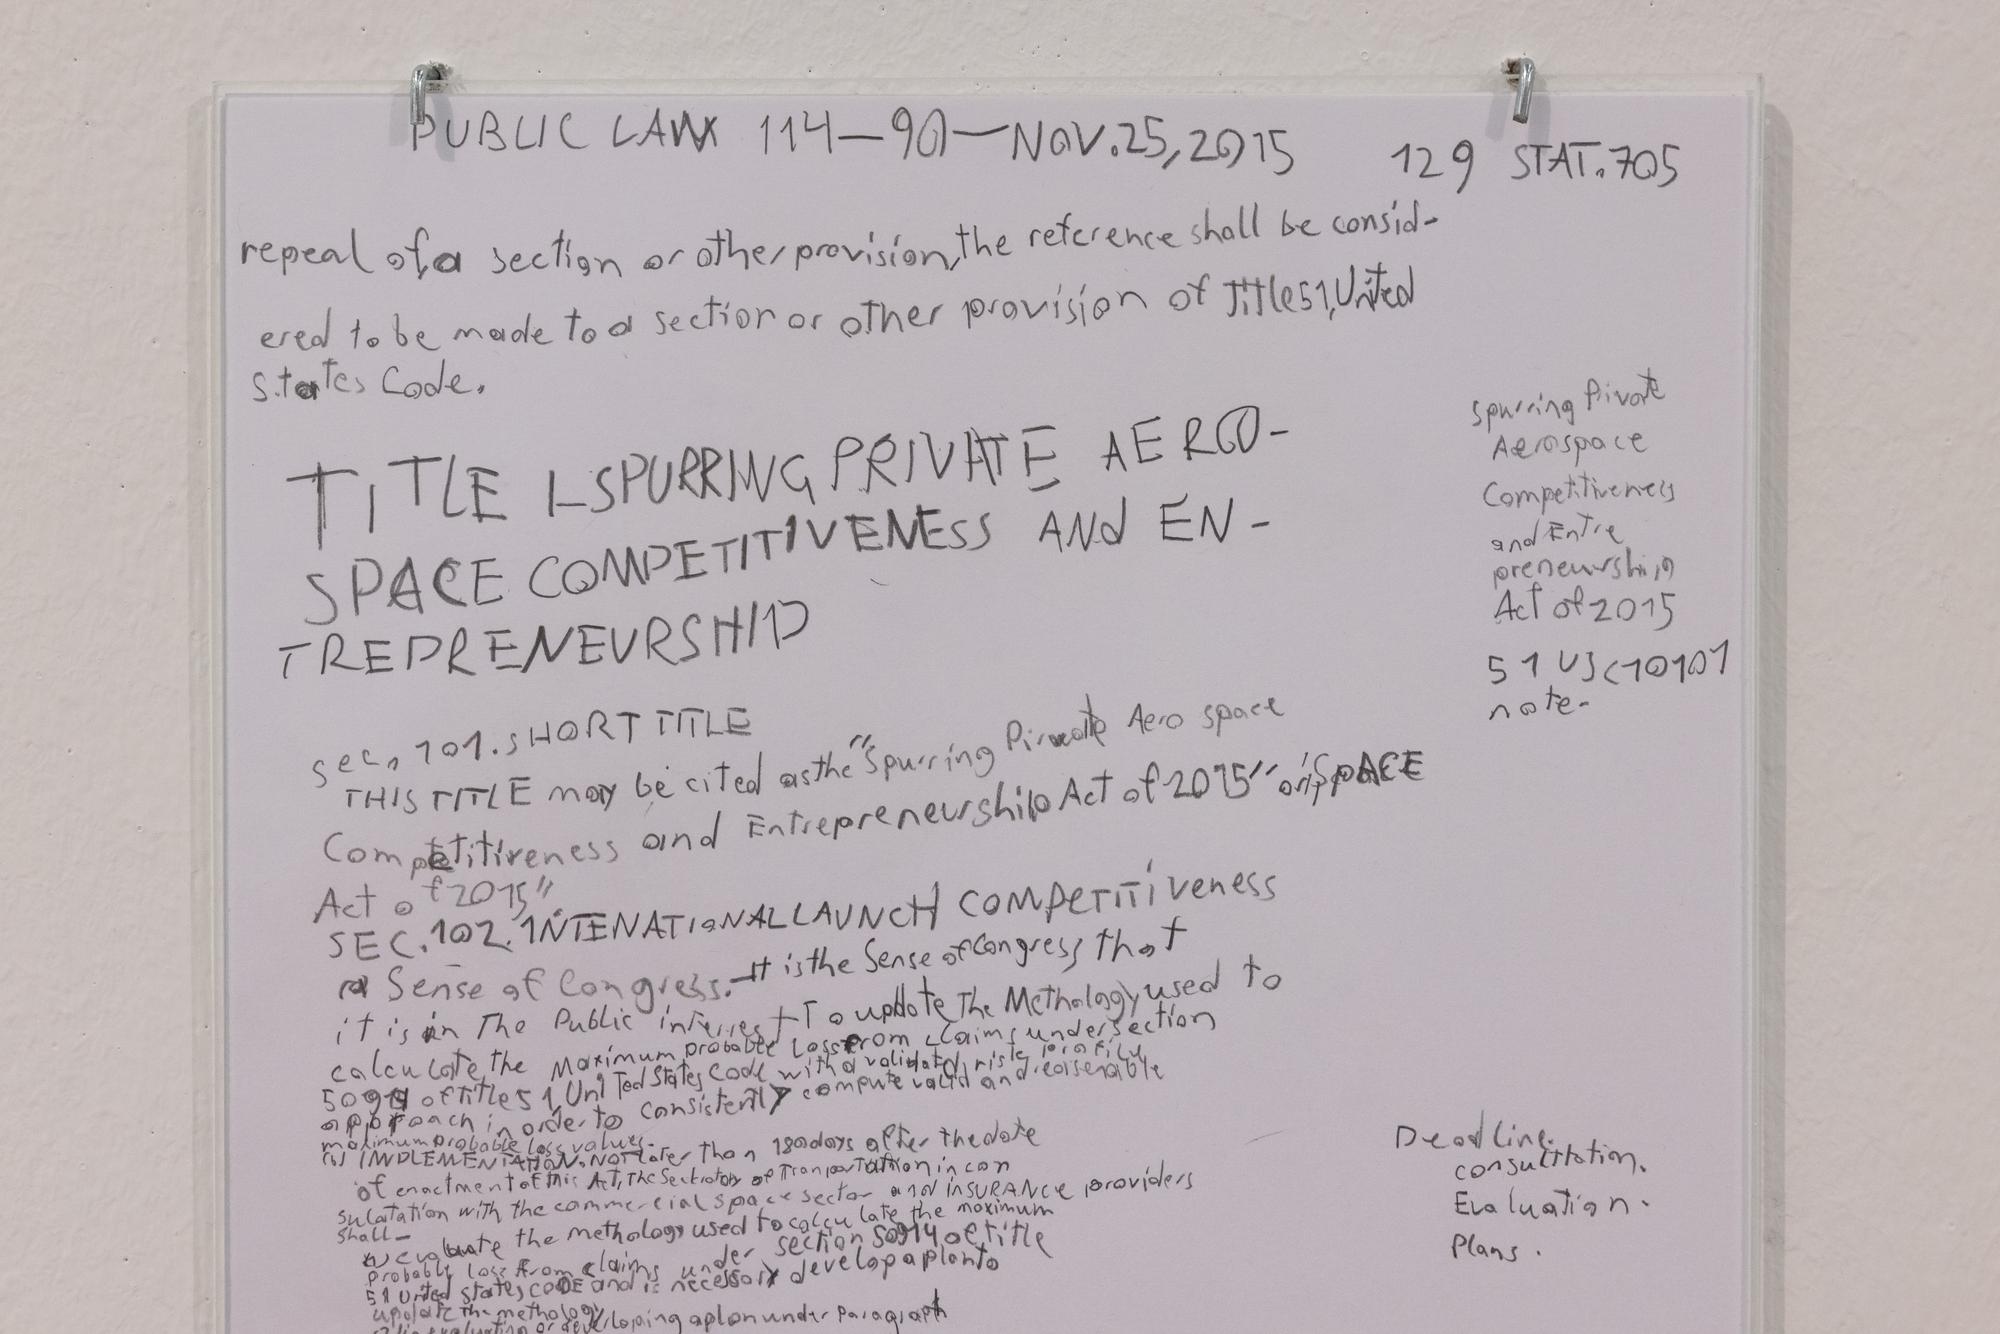 PUBLIC LAW 114—90—NOV.25,2015
129 STAT.705
repeal of a section or other provision, the reference shall be consid-
ered to be made to a section or other provision of Title 51, United
States Code.
TITLE I-SPURRING PRIVATE AERO-
SPACE COMPETITIVENESS AND EN-
TREPRENEURSHIP
Spurring Pivate
Aerospace
Competitiveness
and Entre
preneurship
Act of 2015
51 USC 10101
note-
Sec, 101. SHORT TITLE
THIS TITLE may be cited as the "Spurring Pirvate Aero space
Competitiveness and Entrepreneurship Act of 2015" or "SPACE
Act of 2015"
SEC. 102. INTENATIONAL LAUNCH COMPETITIveness
a Sense of Congress.-It is the Sense of Congress that
it is in The Public interrest To update The Methology used to
calculate the Maximum probable Loss From claims under section
50914 of Title 51 United States Code with a validated risk profile
approach in order to consistently compute valid and reasenable
maximum probable loss values.
(b) IMPLEMENTATION. NOT Later than 180 days after the date
of enactment of this Act, The Secretary of Tranportation in con
sulatation with the commercial space sector and INSURANCE providers
shall—
evaluate the methology used to calculate the maximum
probable loss From claims under section 50914 of title
51 United states CODE and is necessary develop a plan to
update the methology
evaluating or developing a plan under Paragraph
Deadline.
consultation.
Evaluation.
Plans.